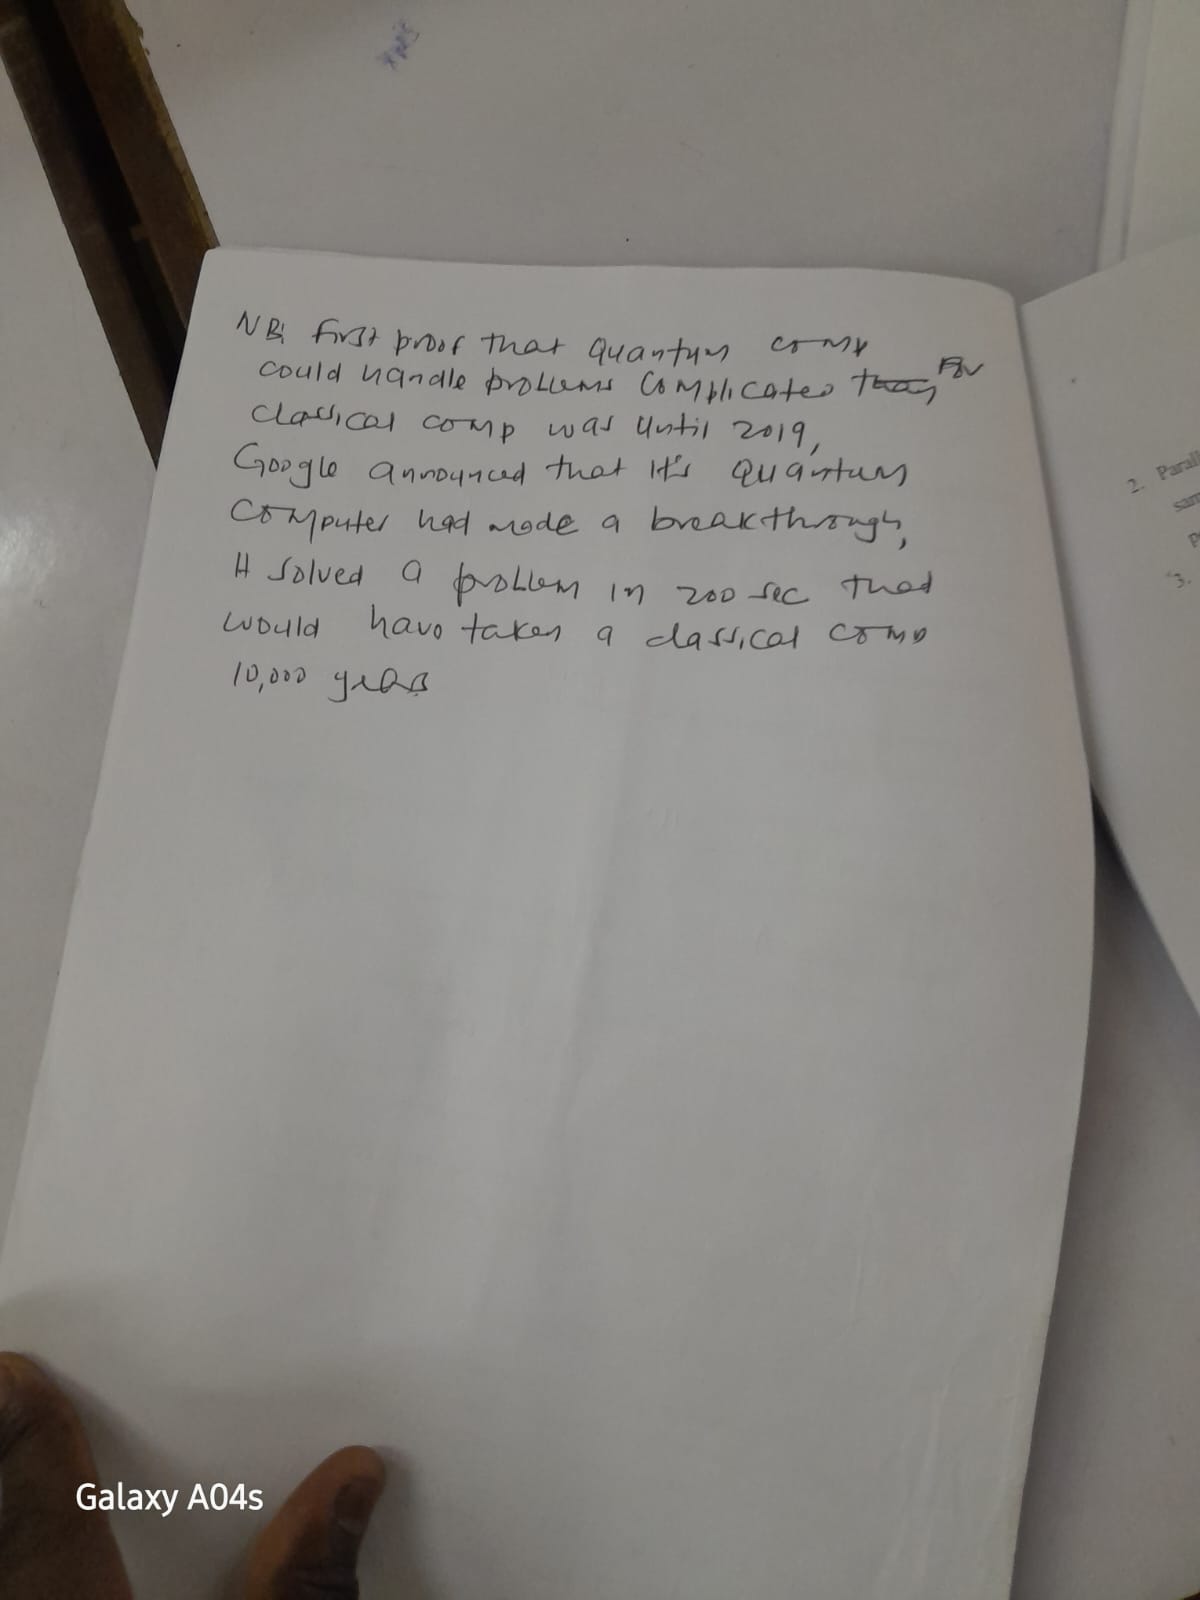 NB: First proof that Quantum comp
could handle problems Complicated than for
classical comp was until 2019,
Google announced that it's Quantum
Computer had made a breakthrough,
It solved a problem in 200 sec that
would have taken a classical comp
10,000 years
2. Parall
sam
P
3.
Galaxy A04s